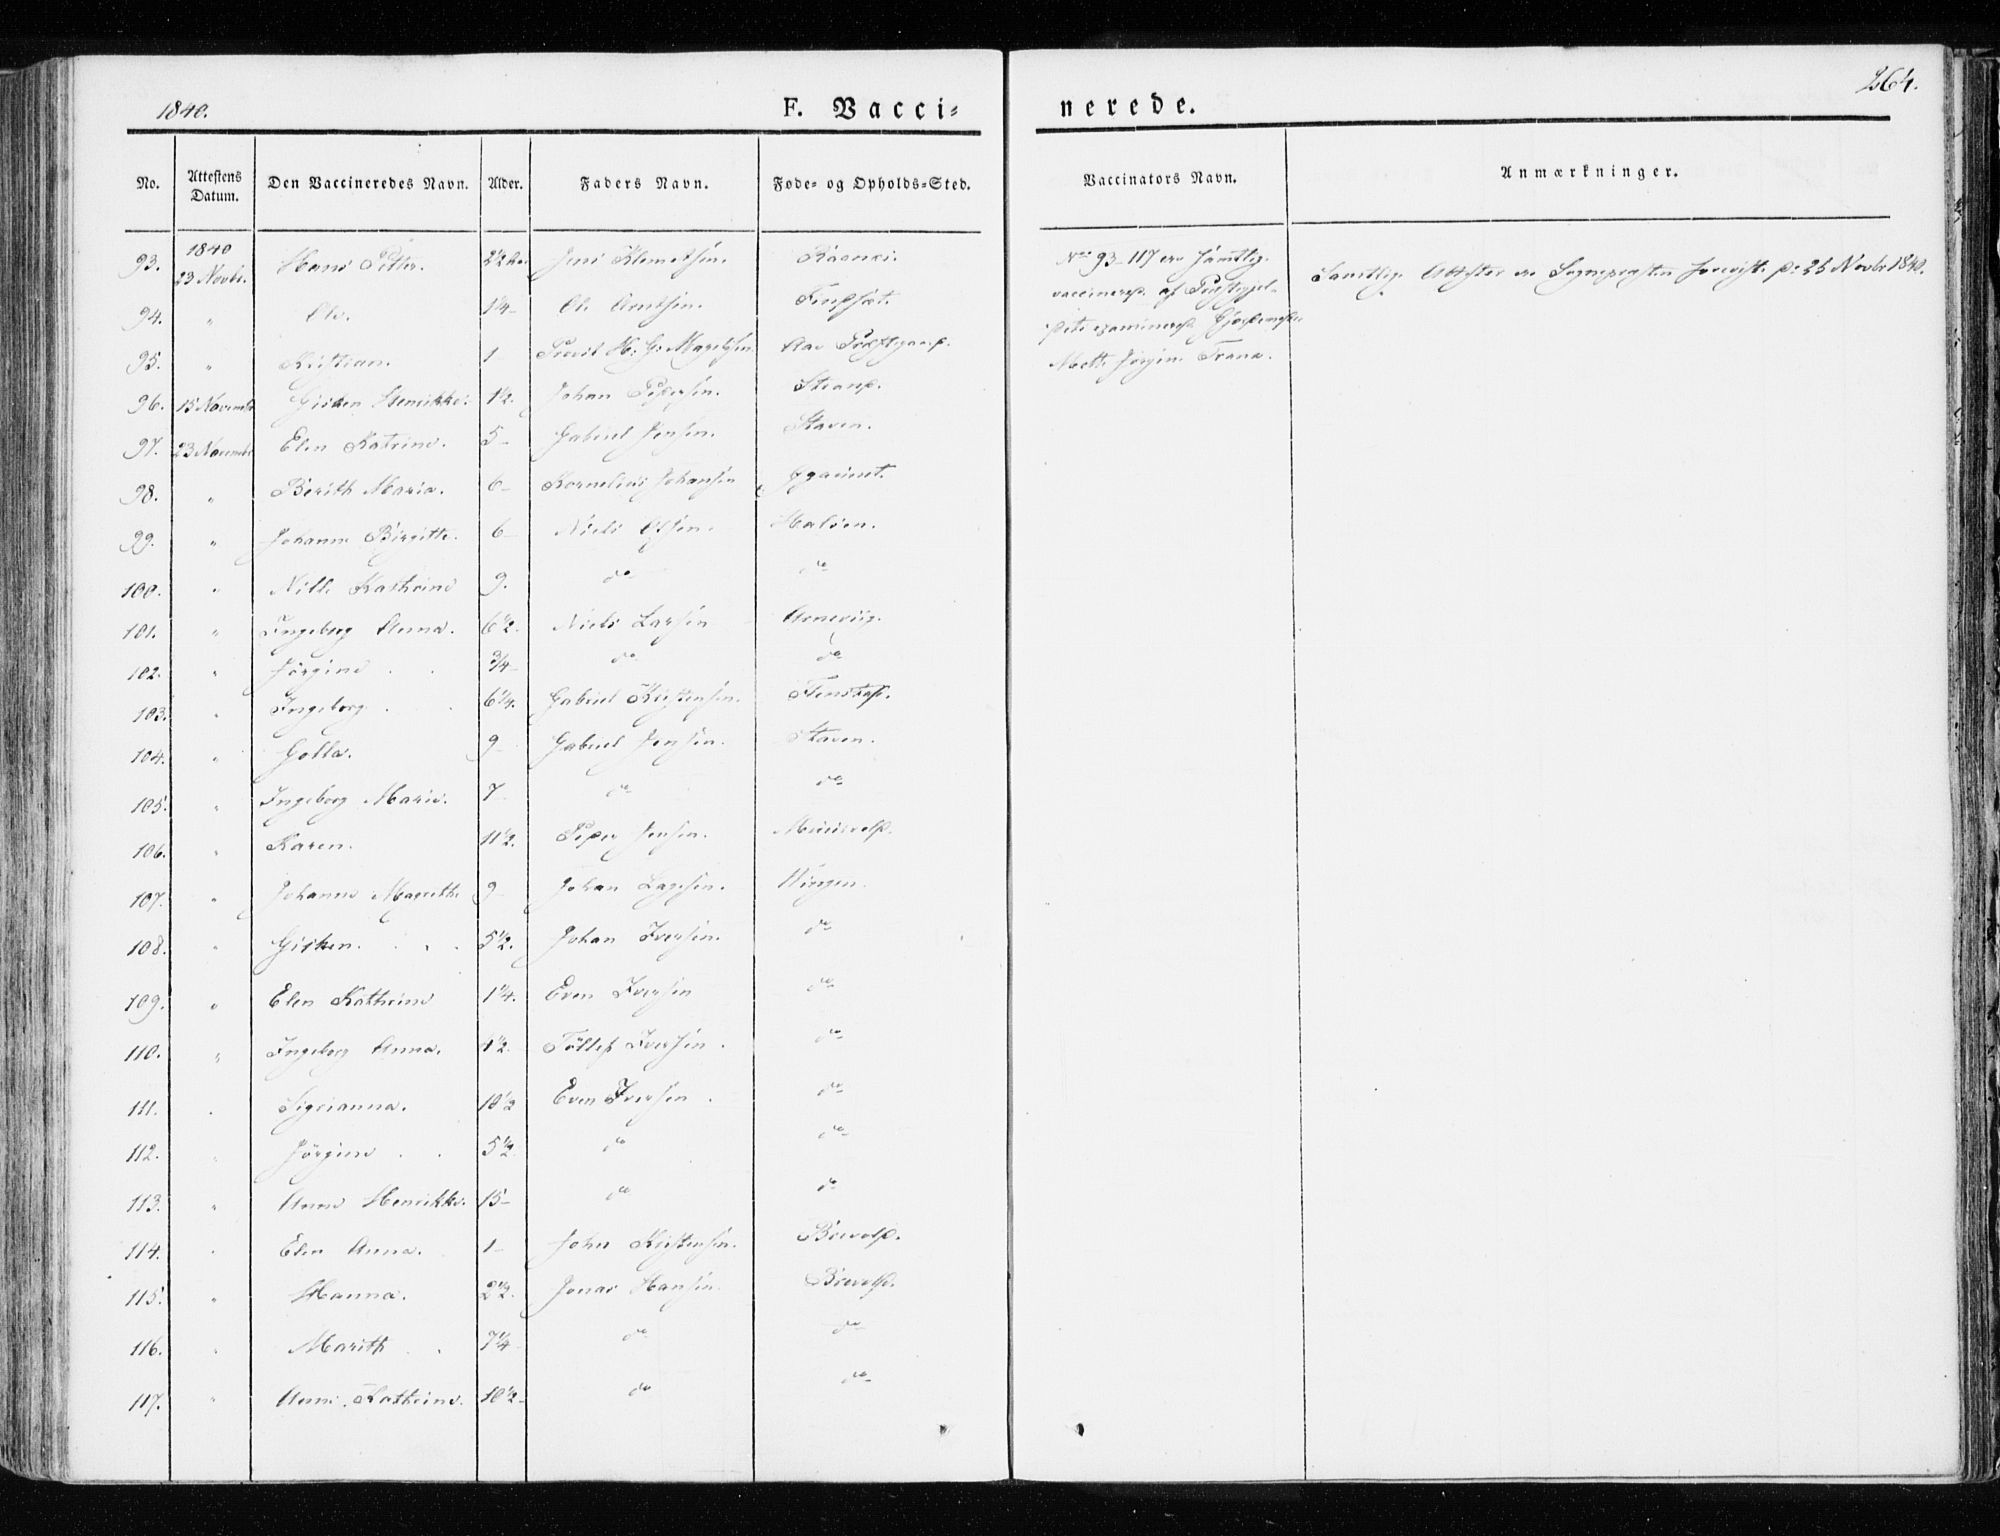 1840.
F. Vacci-
nerede.
264.
No.
Attestens Datum.
Den Vaccineredes Navn.
Alder.
Faders Navn.
Føde- og Opholds-Sted.
Vaccinators Navn.
Anmærkninger.
93. 1840 23 Novbr. Hans Petter. 2½ Jens Klemetsen.
94. " Ole. 1¼ Ole Arntsen.
95. " Kristian. 1
96. 15 Novembr Gisken Henrikke. 1½. Johan Pedersen. Strand.
97. 23 Novembr Elen Katrine. 5 Gabriel Jensen. Staven.
98. " Berith Maria. 6 Kornelius Johansen
99. " Johanna Birgitte. 6 Niels Olsen. Halsen.
100. " Nille Kathrine 9. do do
101. " Ingeborg Anna. 6½. Niels Larsen Arneviig.
102. " Jörgine ¾ do do
103. " Ingeborg 6¼. Gabriel Kristensen. Flenstad.
104. " Golla. 9 Gabriel Jensen. Staven.
105. " Ingeborg Marie. 7 do do
106. " Karen. 11½. Peder Jensen.
107. " Johanna Magrethe 9 Johan Larsen. Wingen.
108. " Gisken. 5½. Johan Iversen. do
109. " Elen Kathrine 1¼. Even Iversen do
110. " Ingeborg Anna. 1½. Tollef Iversen. do
111. " Sigrianna. 10½ Even Iversen. do
112. " Jörgine 5½ do do
113. " Anne Henrikke. 15 do do
114. " Elen Anna. 1 John Kristensen. Brevold.
115. " Hanna. 2½. Jonas Hansen. Brevold.
116. " Marith 7¼ do do
117. " Anne Kathrine. 10½ do do
No 93-117 ere samtlig
vaccinerede af Præstegjel-
dets examinerede Gjordemoder
Mette Jörgine Trana.
Samtlige Attester ere Sognepræsten foreviste d: 25 Novbr 1840.